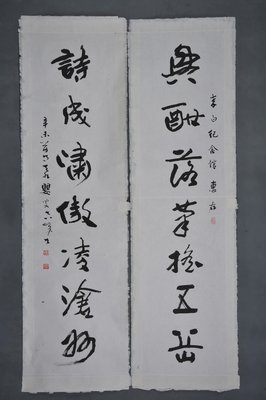 李白紀念館惠存
興酣落筆搖五岳
詩成嘯傲凌滄洲
辛未